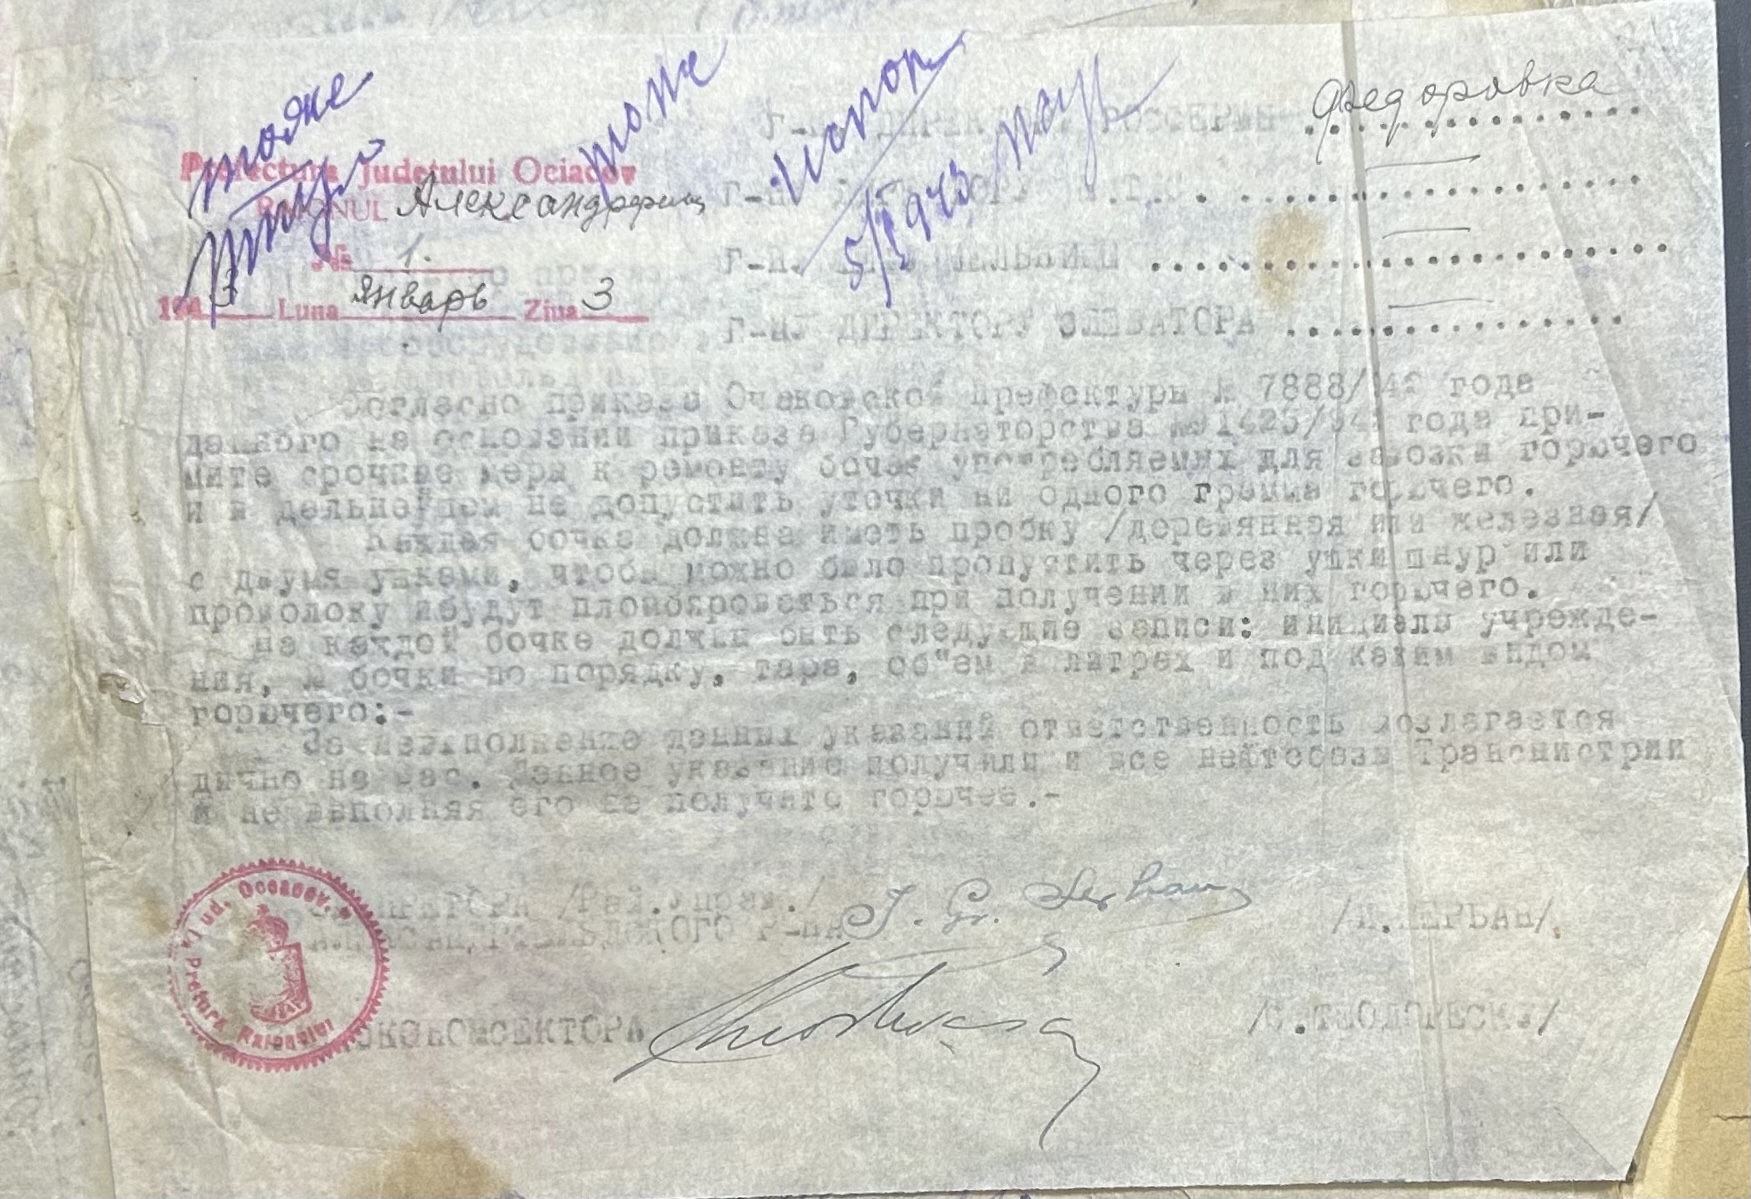 тоже
тоже
5/I 1943
Федоровка
Prefectura Judeţului Ociacov
RAIONUL Александрфельд
№ 1.
1943 Luna Январь Ziua 3
Г-НУ ДИРЕКТОРУ
Г-НУ
Г-НУ
Г-НУ ДИРЕКТОРУ ЭЛЕВАТОРА
Согласно приказа Очаковской префектуры № 7888/942 года
данного на основании приказа Губернаторства № 91425/942 года при-
мите срочные меры к ремонту бочек употребляемых для завозки горючего
и в дальнейшем не допустить утечки ни одного грамма горючего.
Каждая бочка должна иметь пробку /деревянная или железная/
с двумя ушками, чтобы можно было пропустить через ушки шнур или
проволоку ибудут пломбироваться при получении в них горючего.
На каждой бочке должны быть следующие записи: инициалы учрежде-
ния, № бочки по порядку, тара, об"ем в литрах и под каким видом
горючего:-
За невыполнение данных указаний ответственность возлагается
лично на вас. Данное указание получили и все нефтебазы Транснистрии
и не выполняя его не получите горючее.-
ПРЕТОРА /Рай.Управ./ /И.ШЕРБАН/.
АЛЕКСАНДРФЕЛЬДСКОГО Р-НА
ЭКОНОМСЕКТОРА /С.ТЕОДОРЕСКУ/
Jud. Oceacov
Pretura Raionului